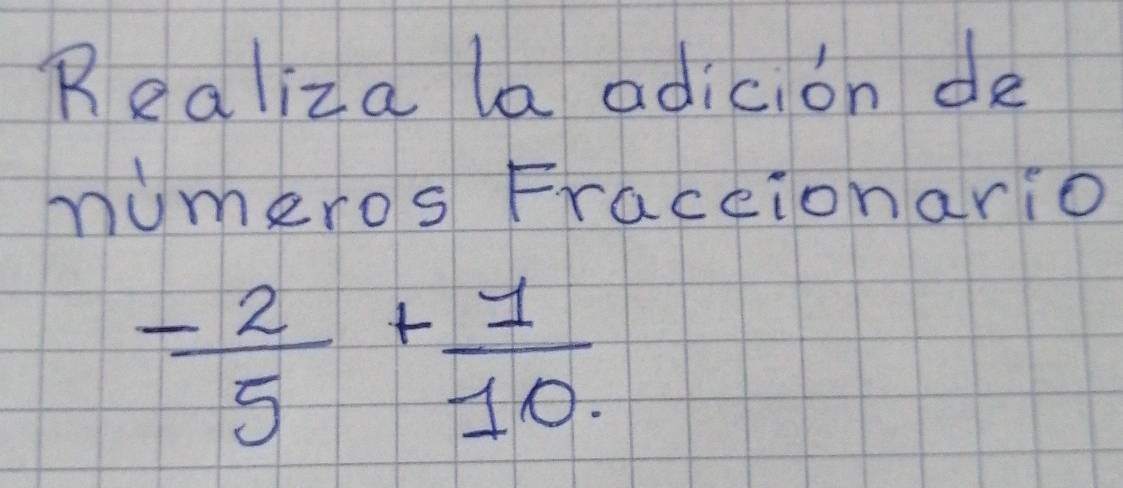 Realiza la adición de
números Fraccionario
-2/5 + 1/10.